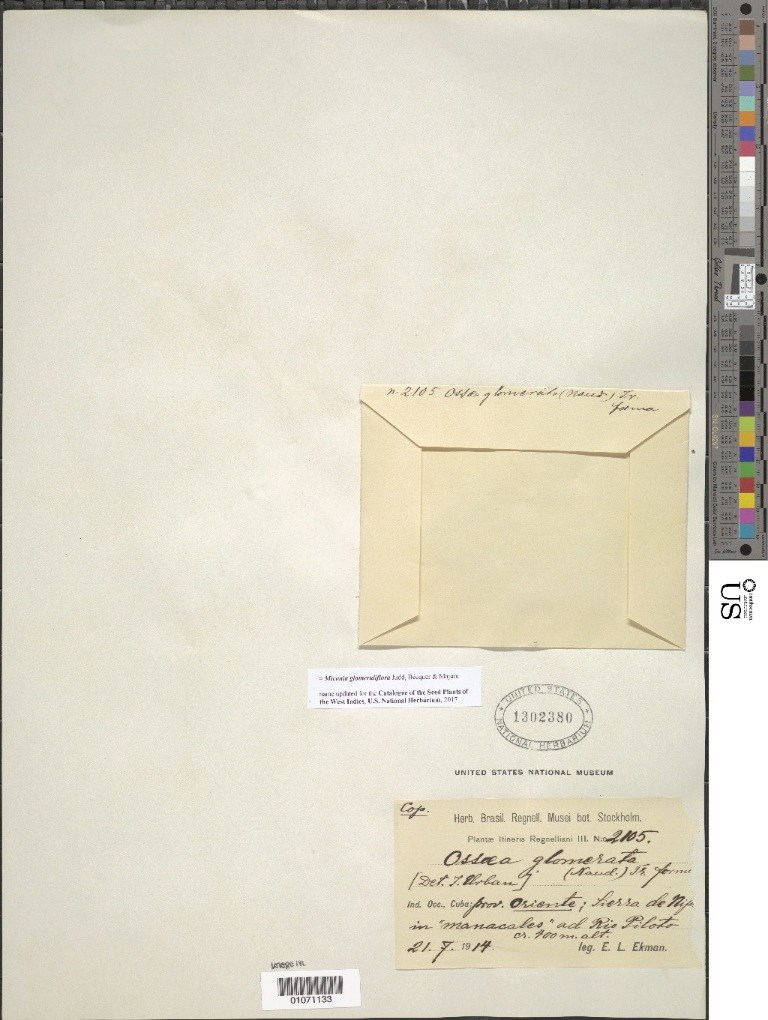 n. 2105 Ossæa glomerata (Naud.) Tr.
forma
= Miconia glomeruliflora Judd, Bécquer & Majure
name updated for the Catalogue of the Seed Plants of
the West Indies, U.S. National Herbarium, 2017
UNITED STATES
1302380
NATIONAL HERBARIUM
UNITED STATES NATIONAL MUSEUM
Cop.
Herb. Brasil. Regnell. Musei bot. Stockholm.
Plantæ Itineris Regnelliani III. No 2105.
Ossæa glomerata
(Naud.) Tr. forma
[Det. I. Urban]
Ind. Occ., Cuba: prov. Oriente; Sierra de Nipe
in "manacales" ad Rio Piloto
cr. 400 m. alt.
21. 7. 1914 leg. E. L. Ekman.
01071133
US